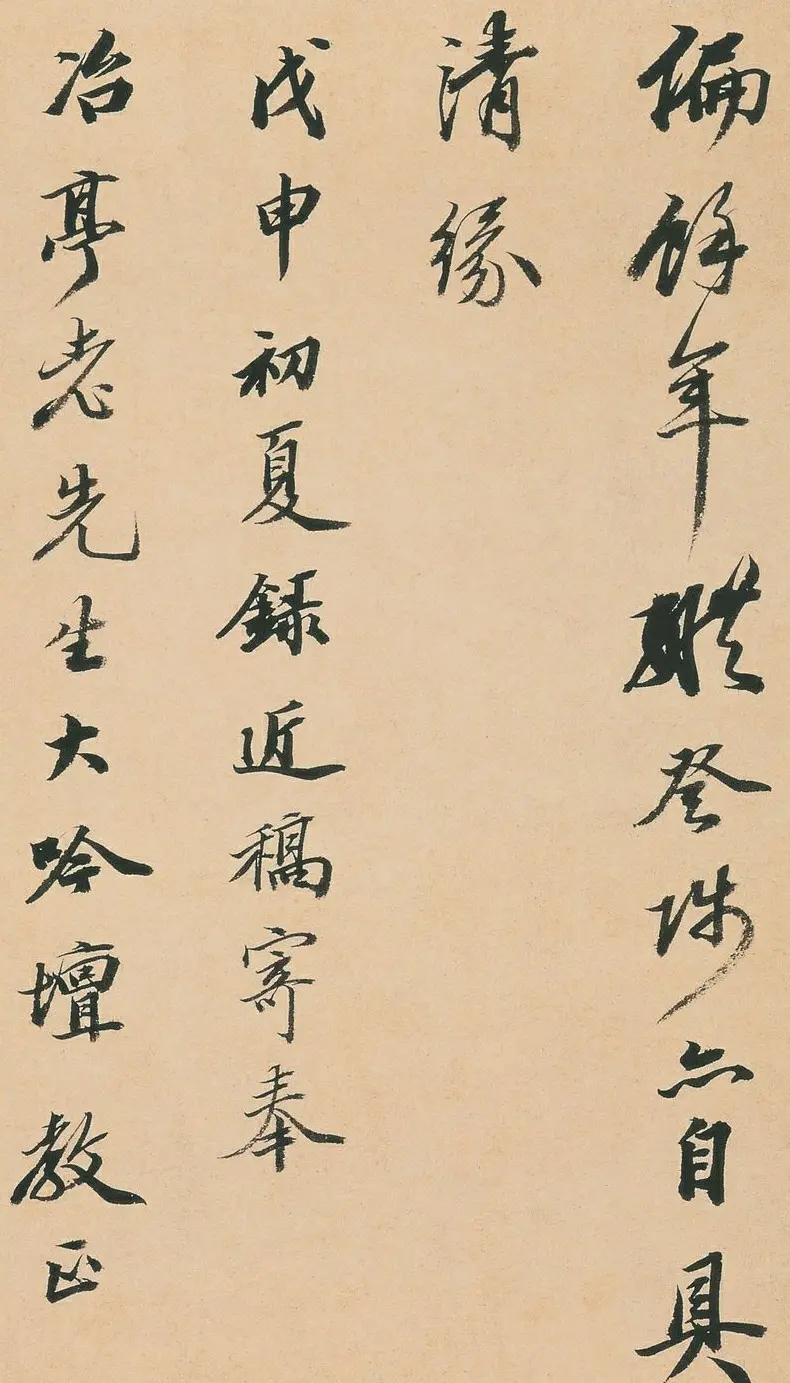 偏餘年登陟亦自具
清緣
戊申初夏録近稿寄奉
冶亭老先生大吟壇教正